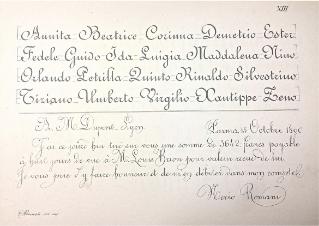 XIII
Annita Beatrice Corinna Demetrio Ester
Fedele Guido Ida Luigia Maddalena Nino
Orlando Petrilla Quinto Rinaldo Silvestrino
Tiziano Umberto Virgilio Xantippe Zeno
A. M. Dupont, Lyon. Parma, Octobre
J'ai ce jour tiré sur vous une somme de francs payable
à huit jours de vue à M. Louis pour valeur reçue de lui.
Je vous prie d'y faire honneur et de m'en débiter dans mon compte.
Romani